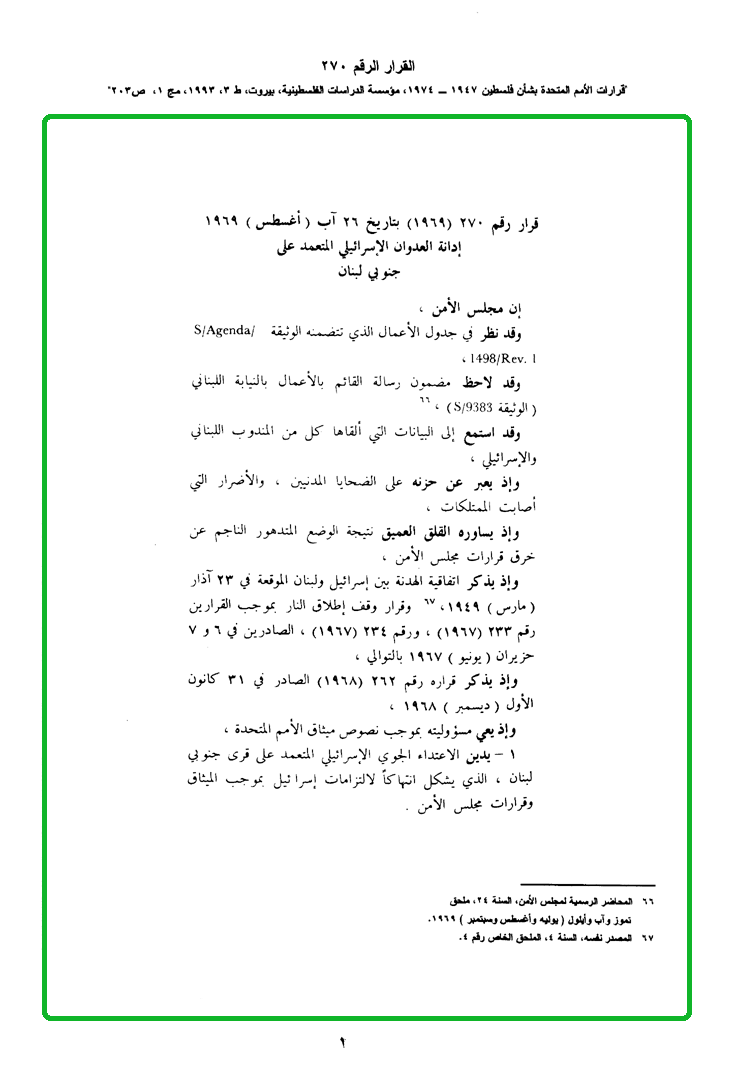 القرار الرقم ٢٧٠
"قرارات الأمم المتحدة بشأن فلسطين ١٩٤٧ ــ ١٩٧٤، مؤسسة الدراسات الفلسطينية، بيروت، ط ٣، ١٩٩٣، مج ١، ص٢٠٣"
قرار رقم ٢٧٠ (١٩٦٩) بتاريخ ٢٦ آب ( أغسطس ) ١٩٦٩
إدانة العدوان الإسرائيلي المتعمد على
جنوبي لبنان
إن مجلس الأمن ،
وقد نظر في جدول الأعمال الذي تتضمنه الوثيقة S/Agenda/
1498/Rev. 1 ،
وقد لاحظ مضمون رسالة القائم بالأعمال بالنيابة اللبناني
( الوثيقة S/9383 ) ، ٦٦
وقد استمع إلى البيانات التي ألقاها كل من المندوب اللبناني
والإسرائيلي ،
وإذ يعبر عن حزنه على الضحايا المدنيين ، والأضرار التي
أصابت الممتلكات ،
وإذ يساوره القلق العميق نتيجة الوضع المتدهور الناجم عن
خرق قرارات مجلس الأمن ،
وإذ يذكر اتفاقية الهدنة بين إسرائيل ولبنان الموقعة في ٢٣ آذار
( مارس ) ١٩٤٩، ٦٧ وقرار وقف إطلاق النار بموجب القرارين
رقم ٢٣٣ (١٩٦٧) ، ورقم ٢٣٤ (١٩٦٧) ، الصادرين في ٦ و ٧
حزيران ( يونيو ) ١٩٦٧ بالتوالي ،
وإذ يذكر قراره رقم ٢٦٢ (١٩٦٨) الصادر في ٣١ كانون
الأول ( ديسمبر ) ١٩٦٨ ،
وإذ يعي مسؤوليته بموجب نصوص ميثاق الأمم المتحدة ،
١ – يدين الاعتداء الجوي الإسرائيلي المتعمد على قرى جنوبي
لبنان ، الذي يشكل انتهاكاً لالتزامات إسرائيل بموجب الميثاق
وقرارات مجلس الأمن .
٦٦ المحاضر الرسمية لمجلس الأمن، السنة ٢٤، ملحق
تموز وآب وأيلول ( يوليه وأغسطس وسبتمبر ) ١٩٦٩.
٦٧ المصدر نفسه، السنة ٤، الملحق الخاص رقم ٤.